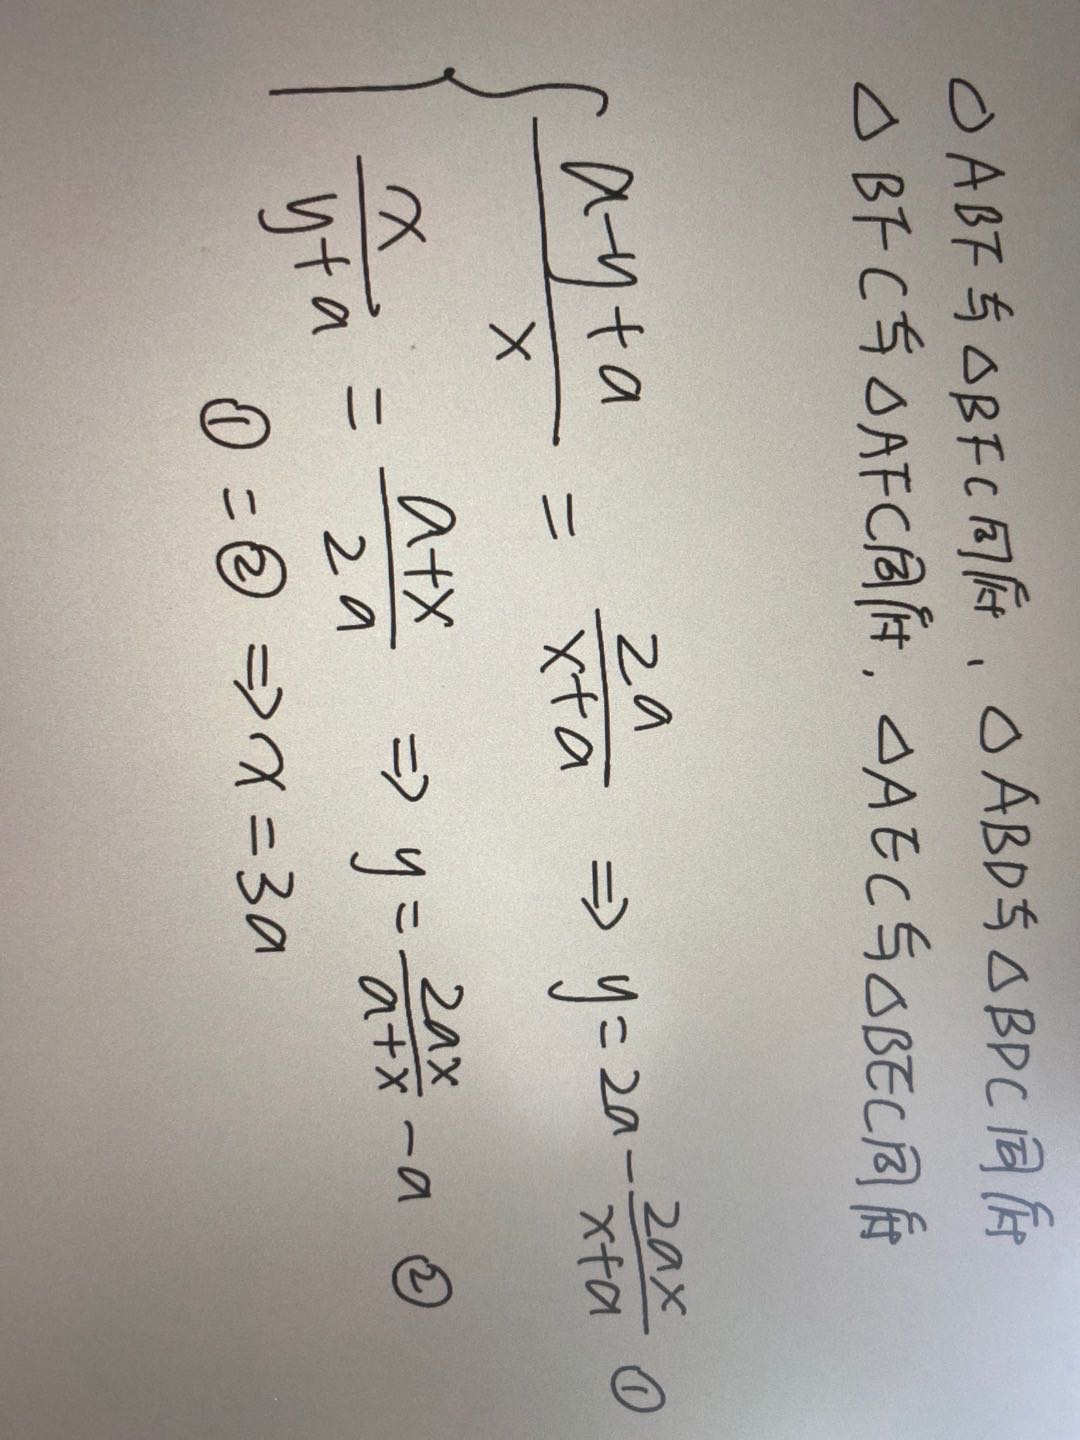 △ABF与△BFC同高，△ABD与△BDC同高
△BFC与△AFC同高，△AEC与△BEC同高
{ (a-y+a)/x = 2a/(x+a) ⇒ y=2a-2ax/(x+a) ①
x/(y+a) = (a+x)/2a ⇒ y=2ax/(a+x)-a ②
①=② ⇒ x=3a